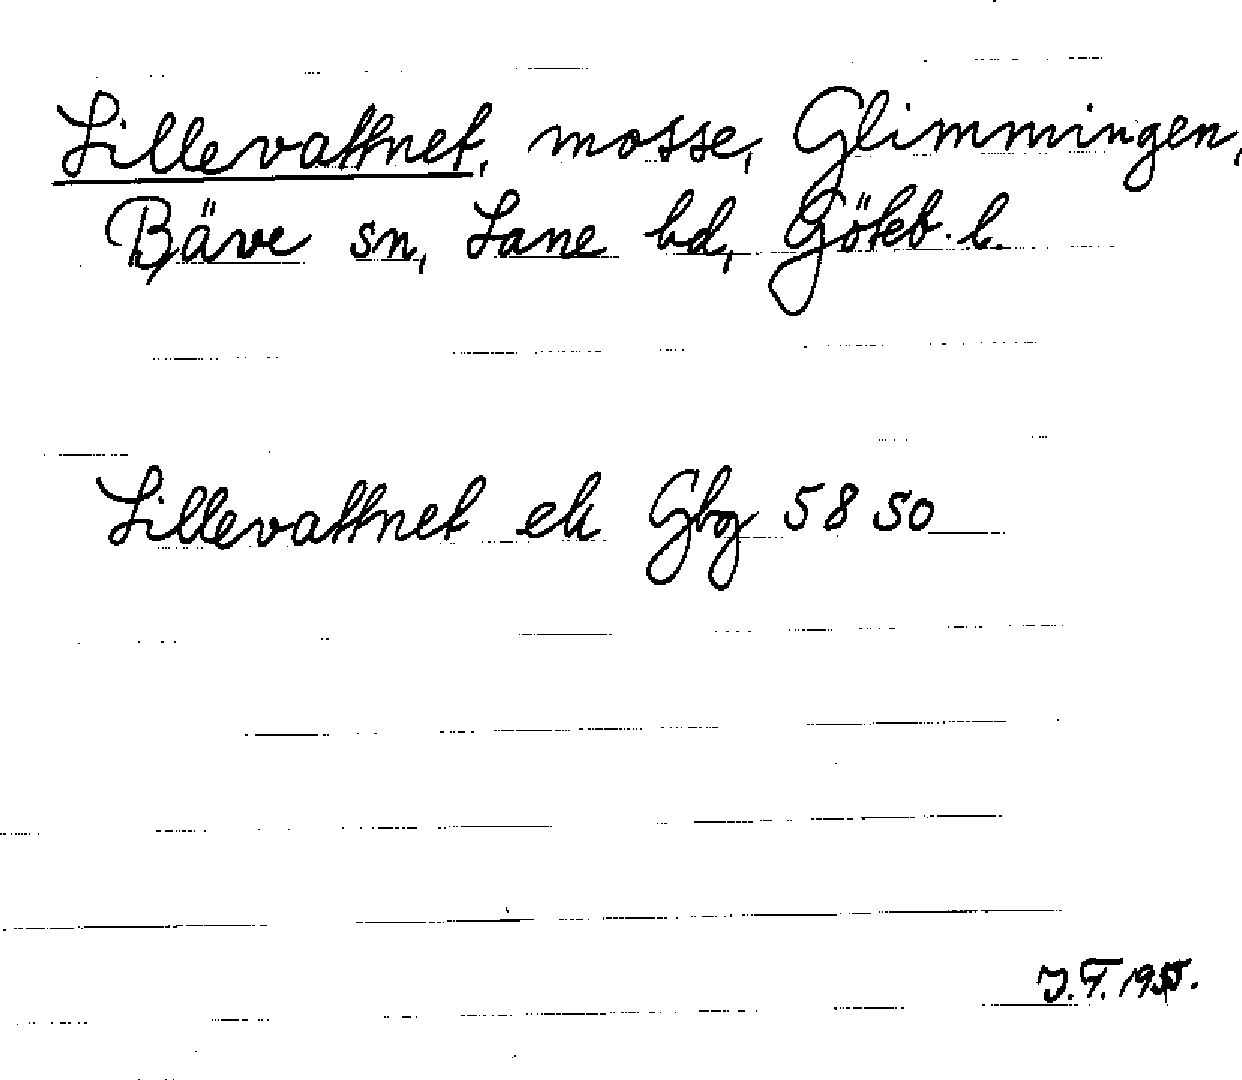 Lillevattnet, mosse, Glimmingen,
Bäve sn, Lane hd, Göteb. l.
Lillevattnet ek Gbg 58 SO
J.F. 1955.